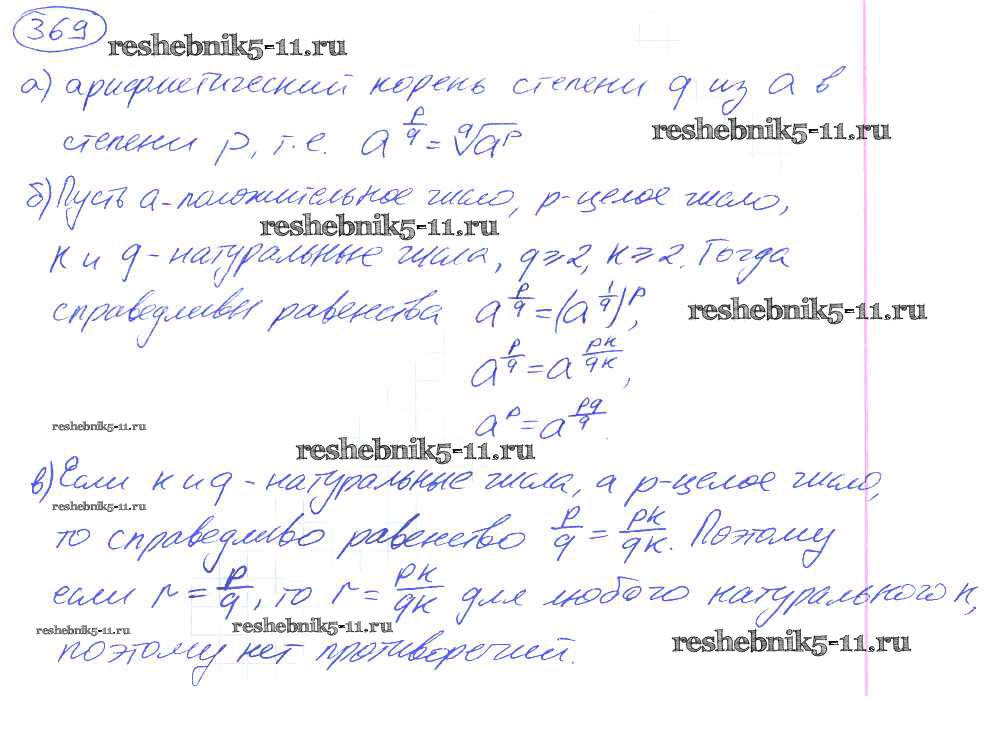 369
reshebnik5-11.ru
а) арифметический корень степени q из a в
степени p, т.е. a^(p/q) = ᑫ√a^p
reshebnik5-11.ru
б) Пусть a - положительное число, p - целое число,
reshebnik5-11.ru
к и q - натуральные числа, q ⩾ 2, к ⩾ 2. Тогда
справедливы равенства a^(p/q) = (a^(1/q))^p,
reshebnik5-11.ru
a^(p/q) = a^(pк/qк),
a^p = a^(pq/q).
reshebnik5-11.ru
reshebnik5-11.ru
в) Если к и q - натуральные числа, а p - целое число,
reshebnik5-11.ru
то справедливо равенство p/q = pк/qк. Поэтому
если r = p/q, то r = pк/qк для любого натурального к,
reshebnik5-11.ru
reshebnik5-11.ru
reshebnik5-11.ru
поэтому нет противоречий.